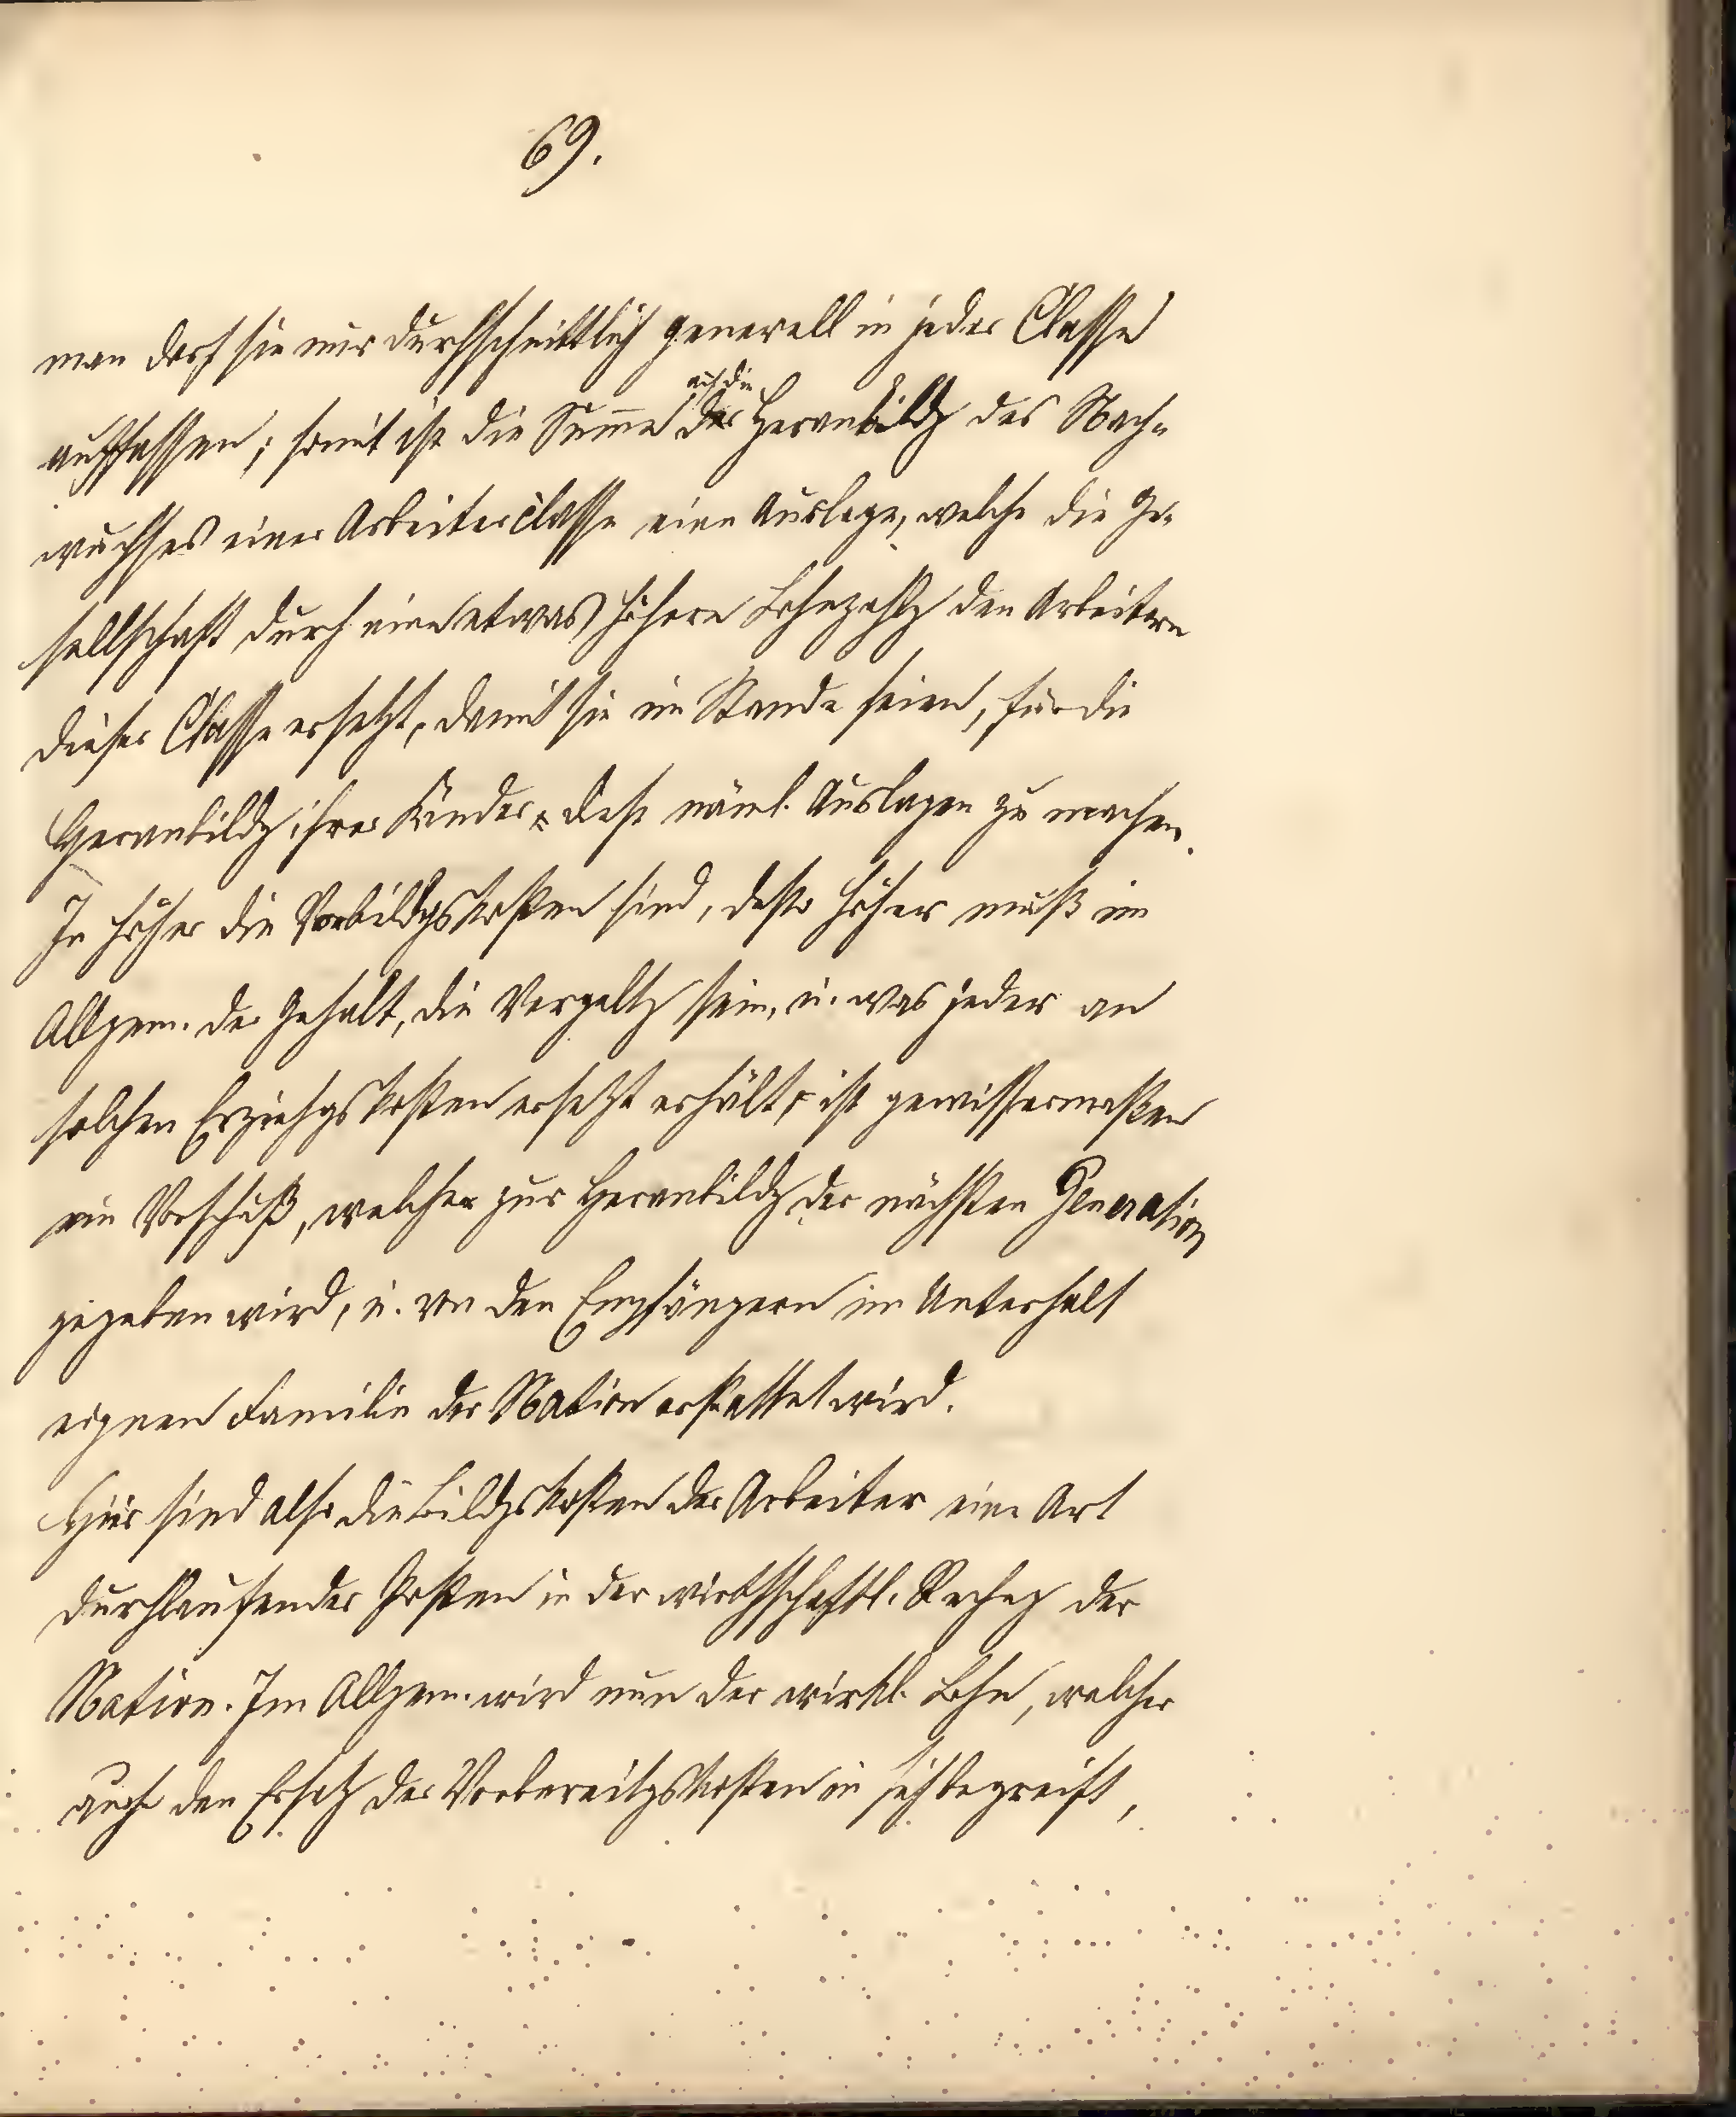 69.
man darf sie nur durchschnittlich generell in jeder Classe
auffassen; somit ist die Sume auf die Heranbildg des Nach-
wuchses einer Arbeiterclasse eine Auslage, welche die Ge-
sellschaft durch eine etwas höhere Lohnzahlg den Arbeitern
dieser Classe ersetzt, damit sie im Stande seien, für die
Heranbildg ihrer Kinder dass näml. Auslagen zu machen.
Je höher die Vorbildgskosten sind, desto höher muß im
Allgem. der Gehalt, die Vergeltg sein, u. was jeder an
solchen Erziehgskosten ersetzt erhält, ist gewissermaßen
ein Vorschuß, welcher zur Heranbildg der nächsten Generation
gegeben wird, u. von den Empfängern im Unterhalt
eignen Familie der Nation erstattet wird.
Hier sind also die Bildgskosten der Arbeiter eine Art
durchlaufender Posten in der wirthschaftl. Rechng der
Nation. Im Allgem. wird nun der wirkl. Lohn, welcher
auch den Ersatz der Vorbereitgskosten in sich begreift,